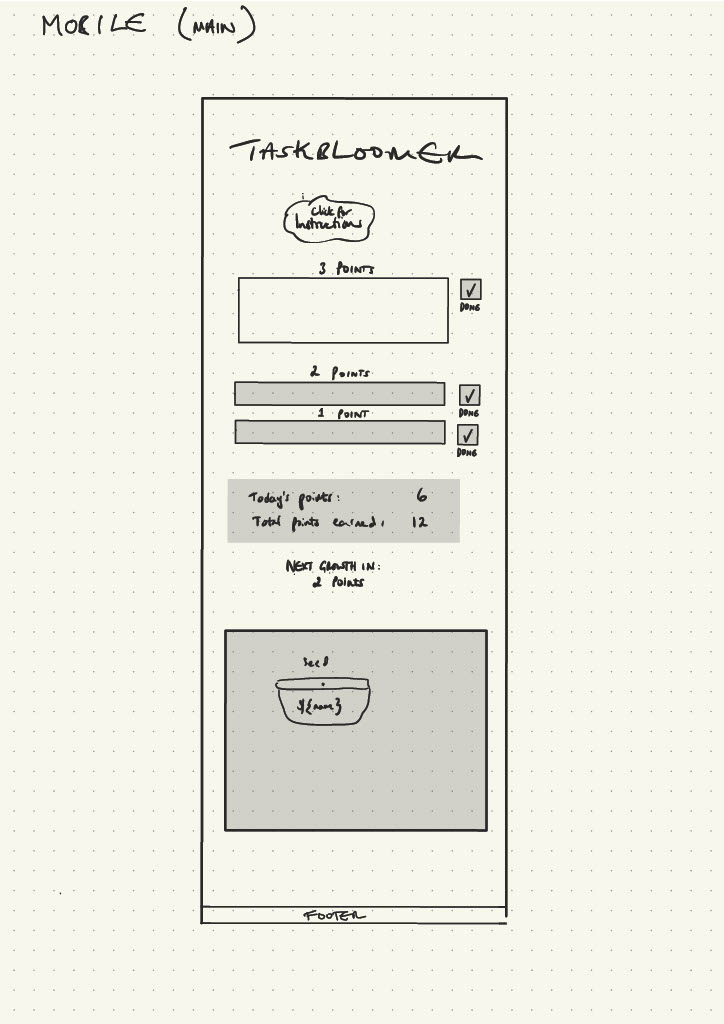 MOBILE (MAIN)
TASKBLOOMER
Click for
Instructions
3 POINTS
DONE
2 POINTS
DONE
1 POINT
DONE
Today's points: 6
Total points earned: 12
NEXT GROWTH IN:
2 POINTS
seed
${name}
FOOTER